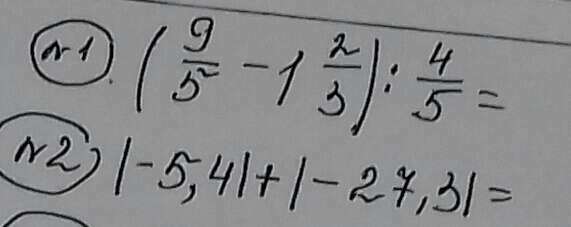 №1. (9/5 - 1 2/3) : 4/5 =
№2) |-5,4| + |-27,3| =